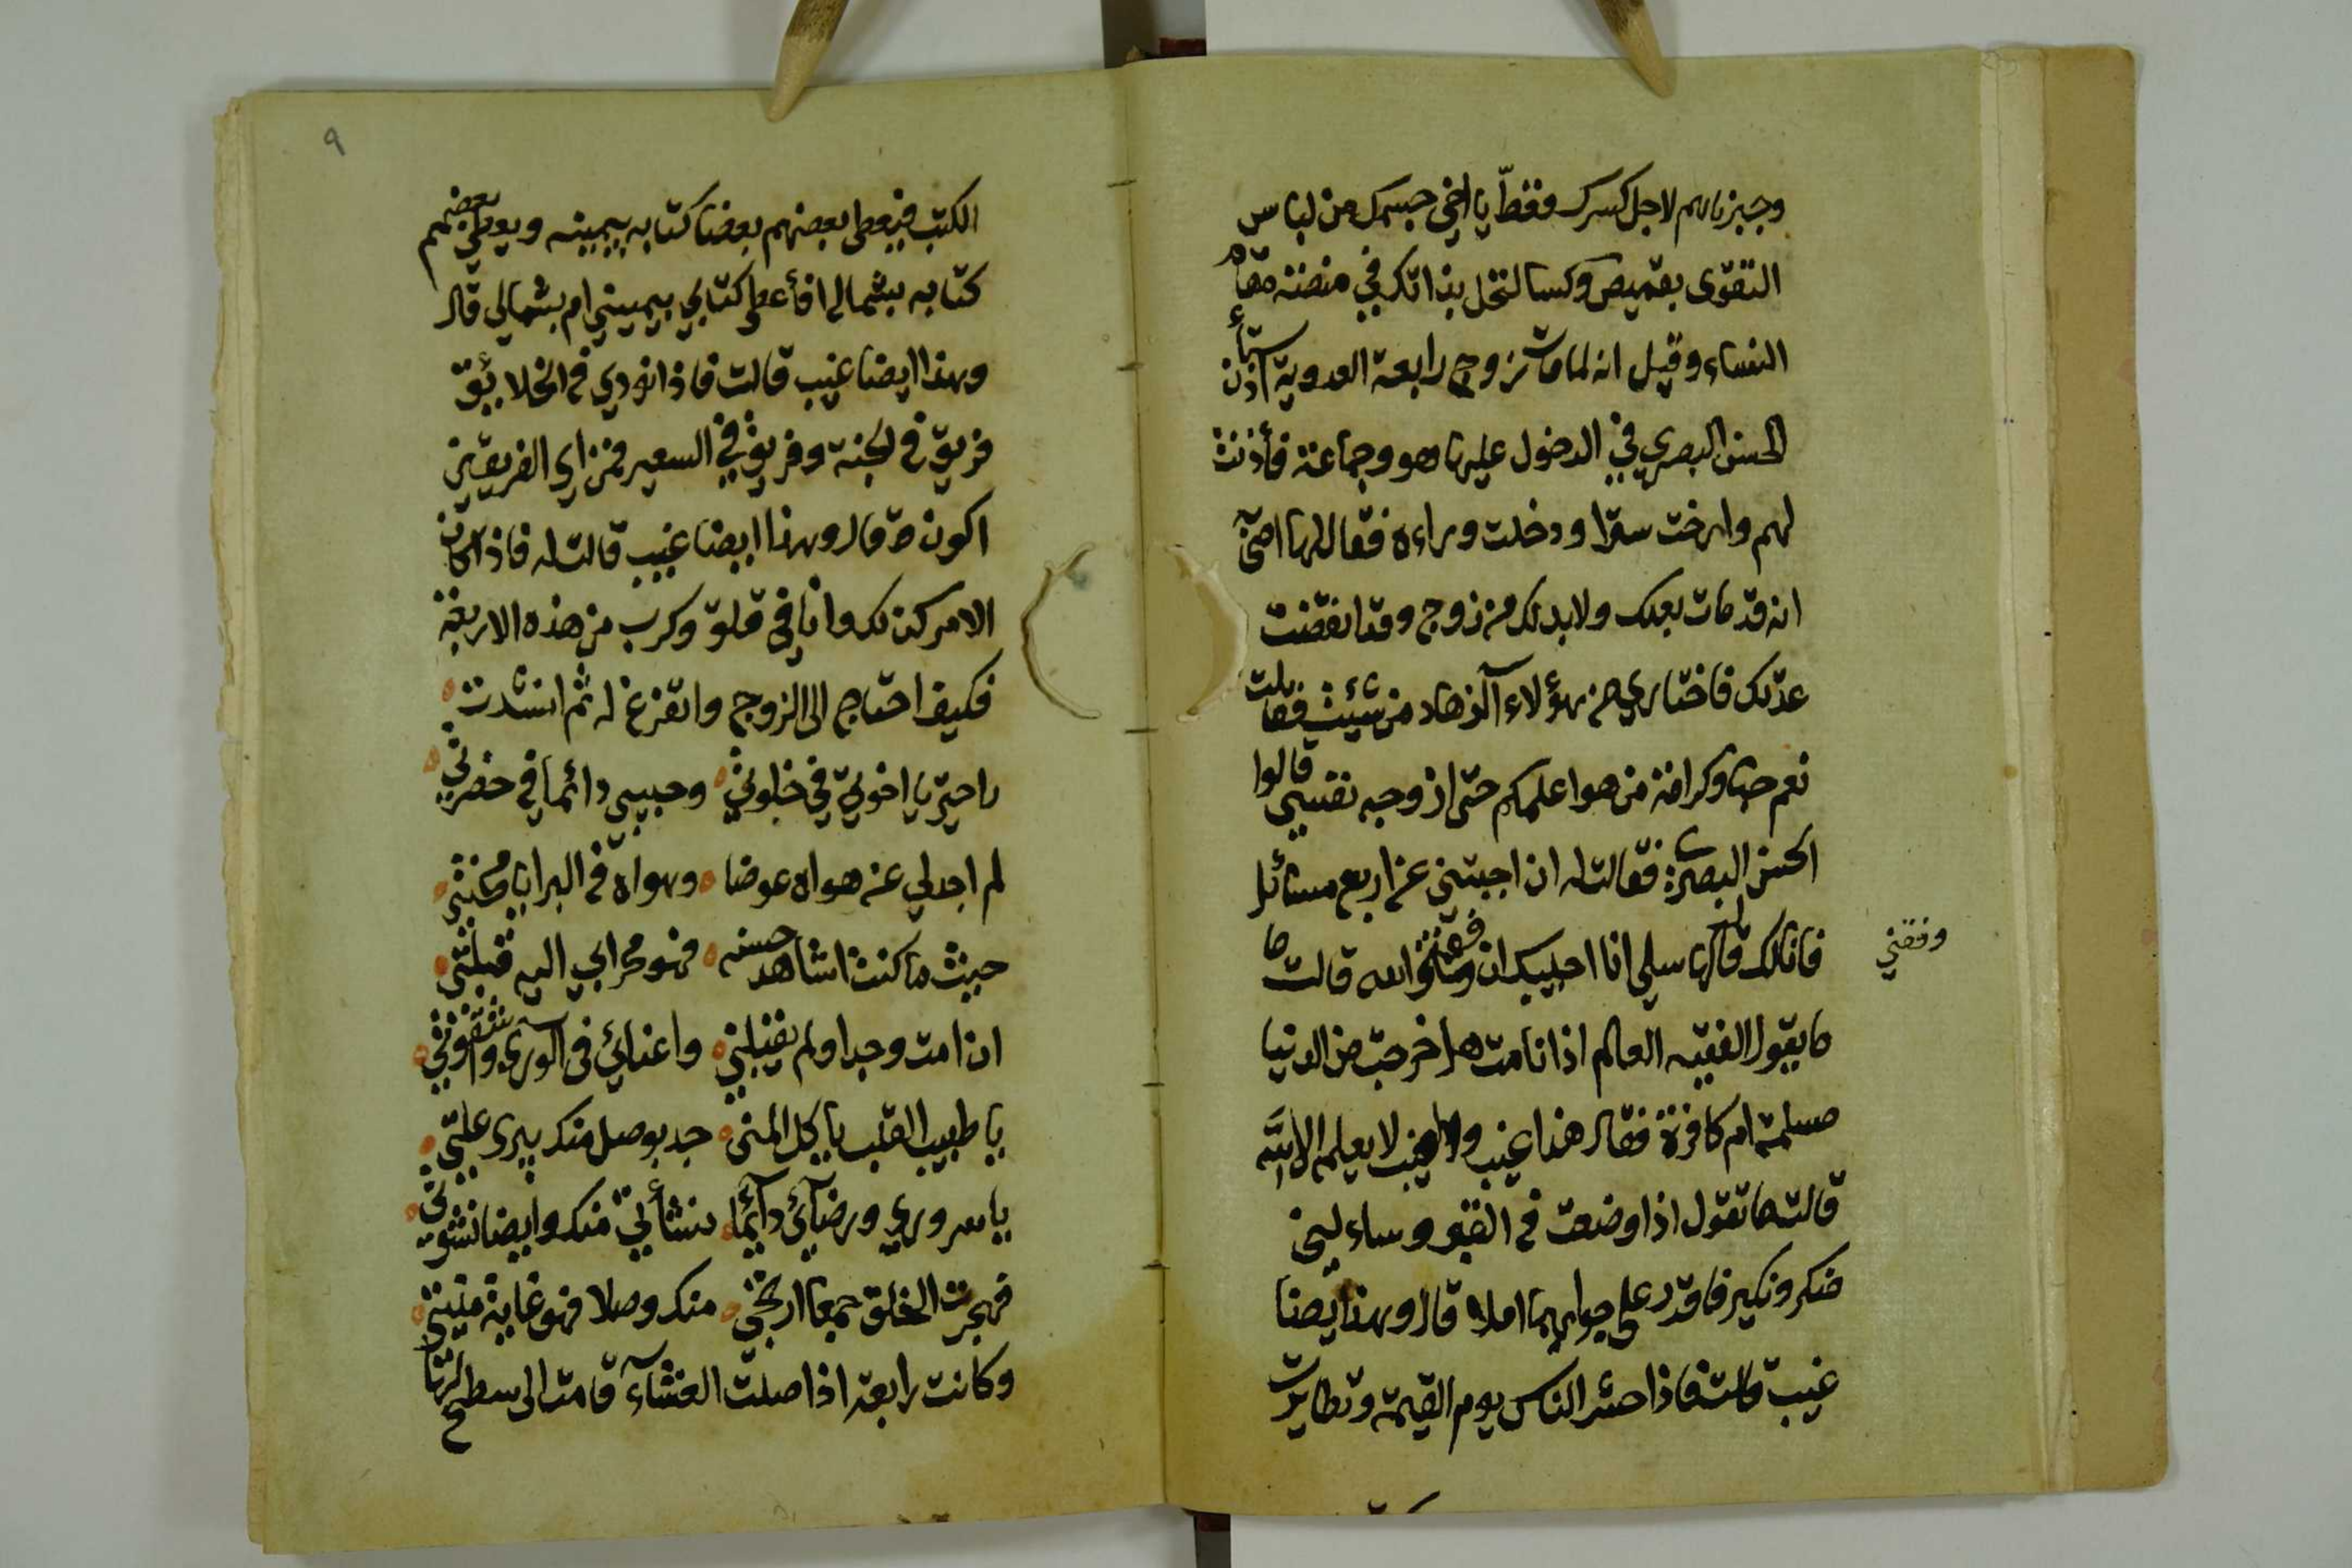 وجبرناهم لاجل كسرك فغطّ يا اخي جسمك من لباس
التقوى بقميص وكسا لتخل بذاتك في منصة مقام
النساء وقيل انه لما مات زوج رابعة العدوية استأذن
الحسن البصري في الدخول عليها هو وجماعته فأذنت
لهم وارخت سترا ودخلت وراءه فقال لها
انه قد مات بعلك ولابد لك من زوج وقد انقضت
عدّتك فاختاري من هؤلاء الزهاد من شئت فقالت
نعم حبا وكرامة من هو اعلمكم حتى ازوجه نفسي قالوا
الحسن البصري فقالت له ان اجبتني عن اربع مسائل
فانا لك قال لها سلي انا اجيبك ان وفقني الله قالت ما
وفقني
ما يقول الفقيه العالم اذا انا مت هل خرجت من الدنيا
مسلمة ام كافرة فقال هذا غيب والغيب لا يعلمه الا الله
قالت ما تقول اذا وضعت في القبر وساءلني
منكر ونكير فاقدر على جوابهما ام لا قال وهذا ايضا
غيب قالت فاذا حشر الناس يوم القيمة وتطايرت
٩
الكتب فيعطى بعضهم بعضا كتابه بيمينه ويعطى بعضهم
كتابه بشماله افأعطى كتابي بيميني ام بشمالي قال
وهذا ايضا غيب قالت فاذا نودي في الخلائق
فريق في الجنة وفريق في السعير فمن اي الفريقين
اكون قال وهذا ايضا غيب قالت له فاذا كان
الامر كذلك وانا في قلق وكرب من هذه الاربعة
فكيف احتاج الى الزوج واتفرغ له ثم انشدت
راحتي يا اخوتي في خلوتي وحبيبي دائما في حضرتي
لم اجد لي عن هواه عوضا وهواه في البرايا محنتي
حيث ما كنت اشاهد حسنه فهو محرابي اليه قبلتي
ان امت وجدا ولم يقبلني واعنائي في الورى واشقوتي
يا طبيب القلب يا كل المنى جد بوصل منك يبري علتي
يا سروري ورضائي دائما نشأتي منك وايضا نشوتي
فهجرت الخلق جمعا ارتجي منك وصلا فهو غاية منيتي
وكانت رابعة اذا صلت العشاء قامت الى سطح لها